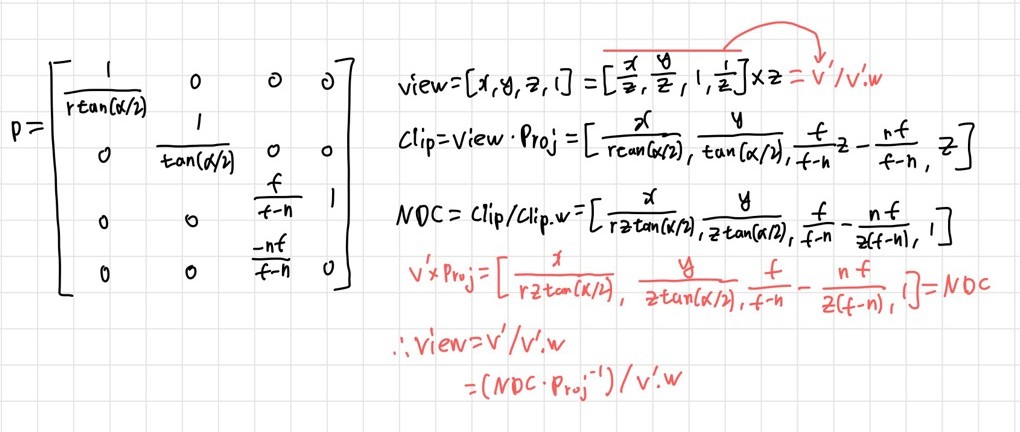 P = [ 1/(r tan(α/2)) 0 0 0
0 1/tan(α/2) 0 0
0 0 f/(f-n) 1
0 0 -nf/(f-n) 0 ]
view = [x, y, z, 1] = [x/z, y/z, 1, 1/z] × z = v'/v'.w
Clip = view · Proj = [x/(r tan(α/2)), y/tan(α/2), f/(f-n) z - nf/(f-n), z]
NDC = Clip/Clip.w = [x/(rz tan(α/2)), y/(z tan(α/2)), f/(f-n) - nf/(z(f-n)), 1]
v' × Proj = [x/(rz tan(α/2)), y/(z tan(α/2)), f/(f-n) - nf/(z(f-n)), 1] = NDC
∴ view = v'/v'.w
= (NDC · Proj⁻¹)/v'.w